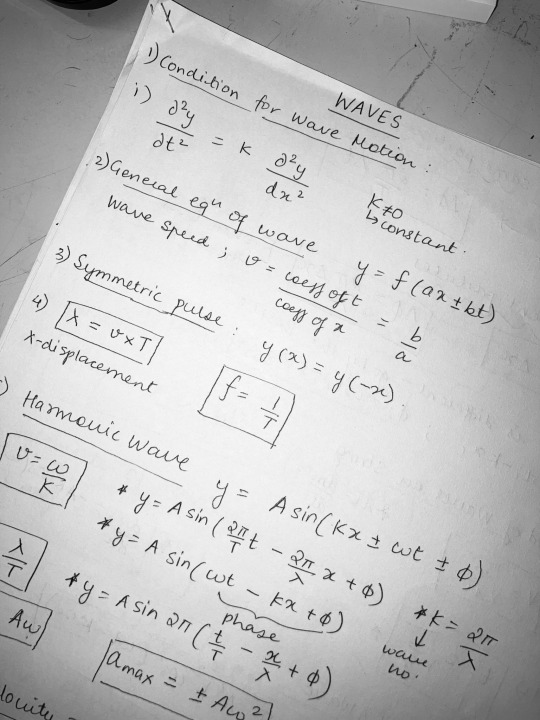 WAVES
1) Condition for wave Motion :
i) ∂²y/∂t² = K ∂²y/dx²
K≠0
↳ constant.
2) General eqⁿ of wave y = f(ax ± bt)
wave speed ; v = coeff of t / coeff of x = b/a
3) Symmetric pulse : y(x) = y(-x).
4) λ = v×T f = 1/T
x-displacement
Harmonic Wave y = A sin(Kx ± ωt ± ϕ)
v = ω/K * y = A sin(2π/T t - 2π/λ x + ϕ)
* y = A sin(ωt - Kx + ϕ)
phase
* K = 2π/λ
↓
wave no.
λ/T * y = A sin 2π(t/T - x/λ + ϕ)
Aω amax = ± Aω²